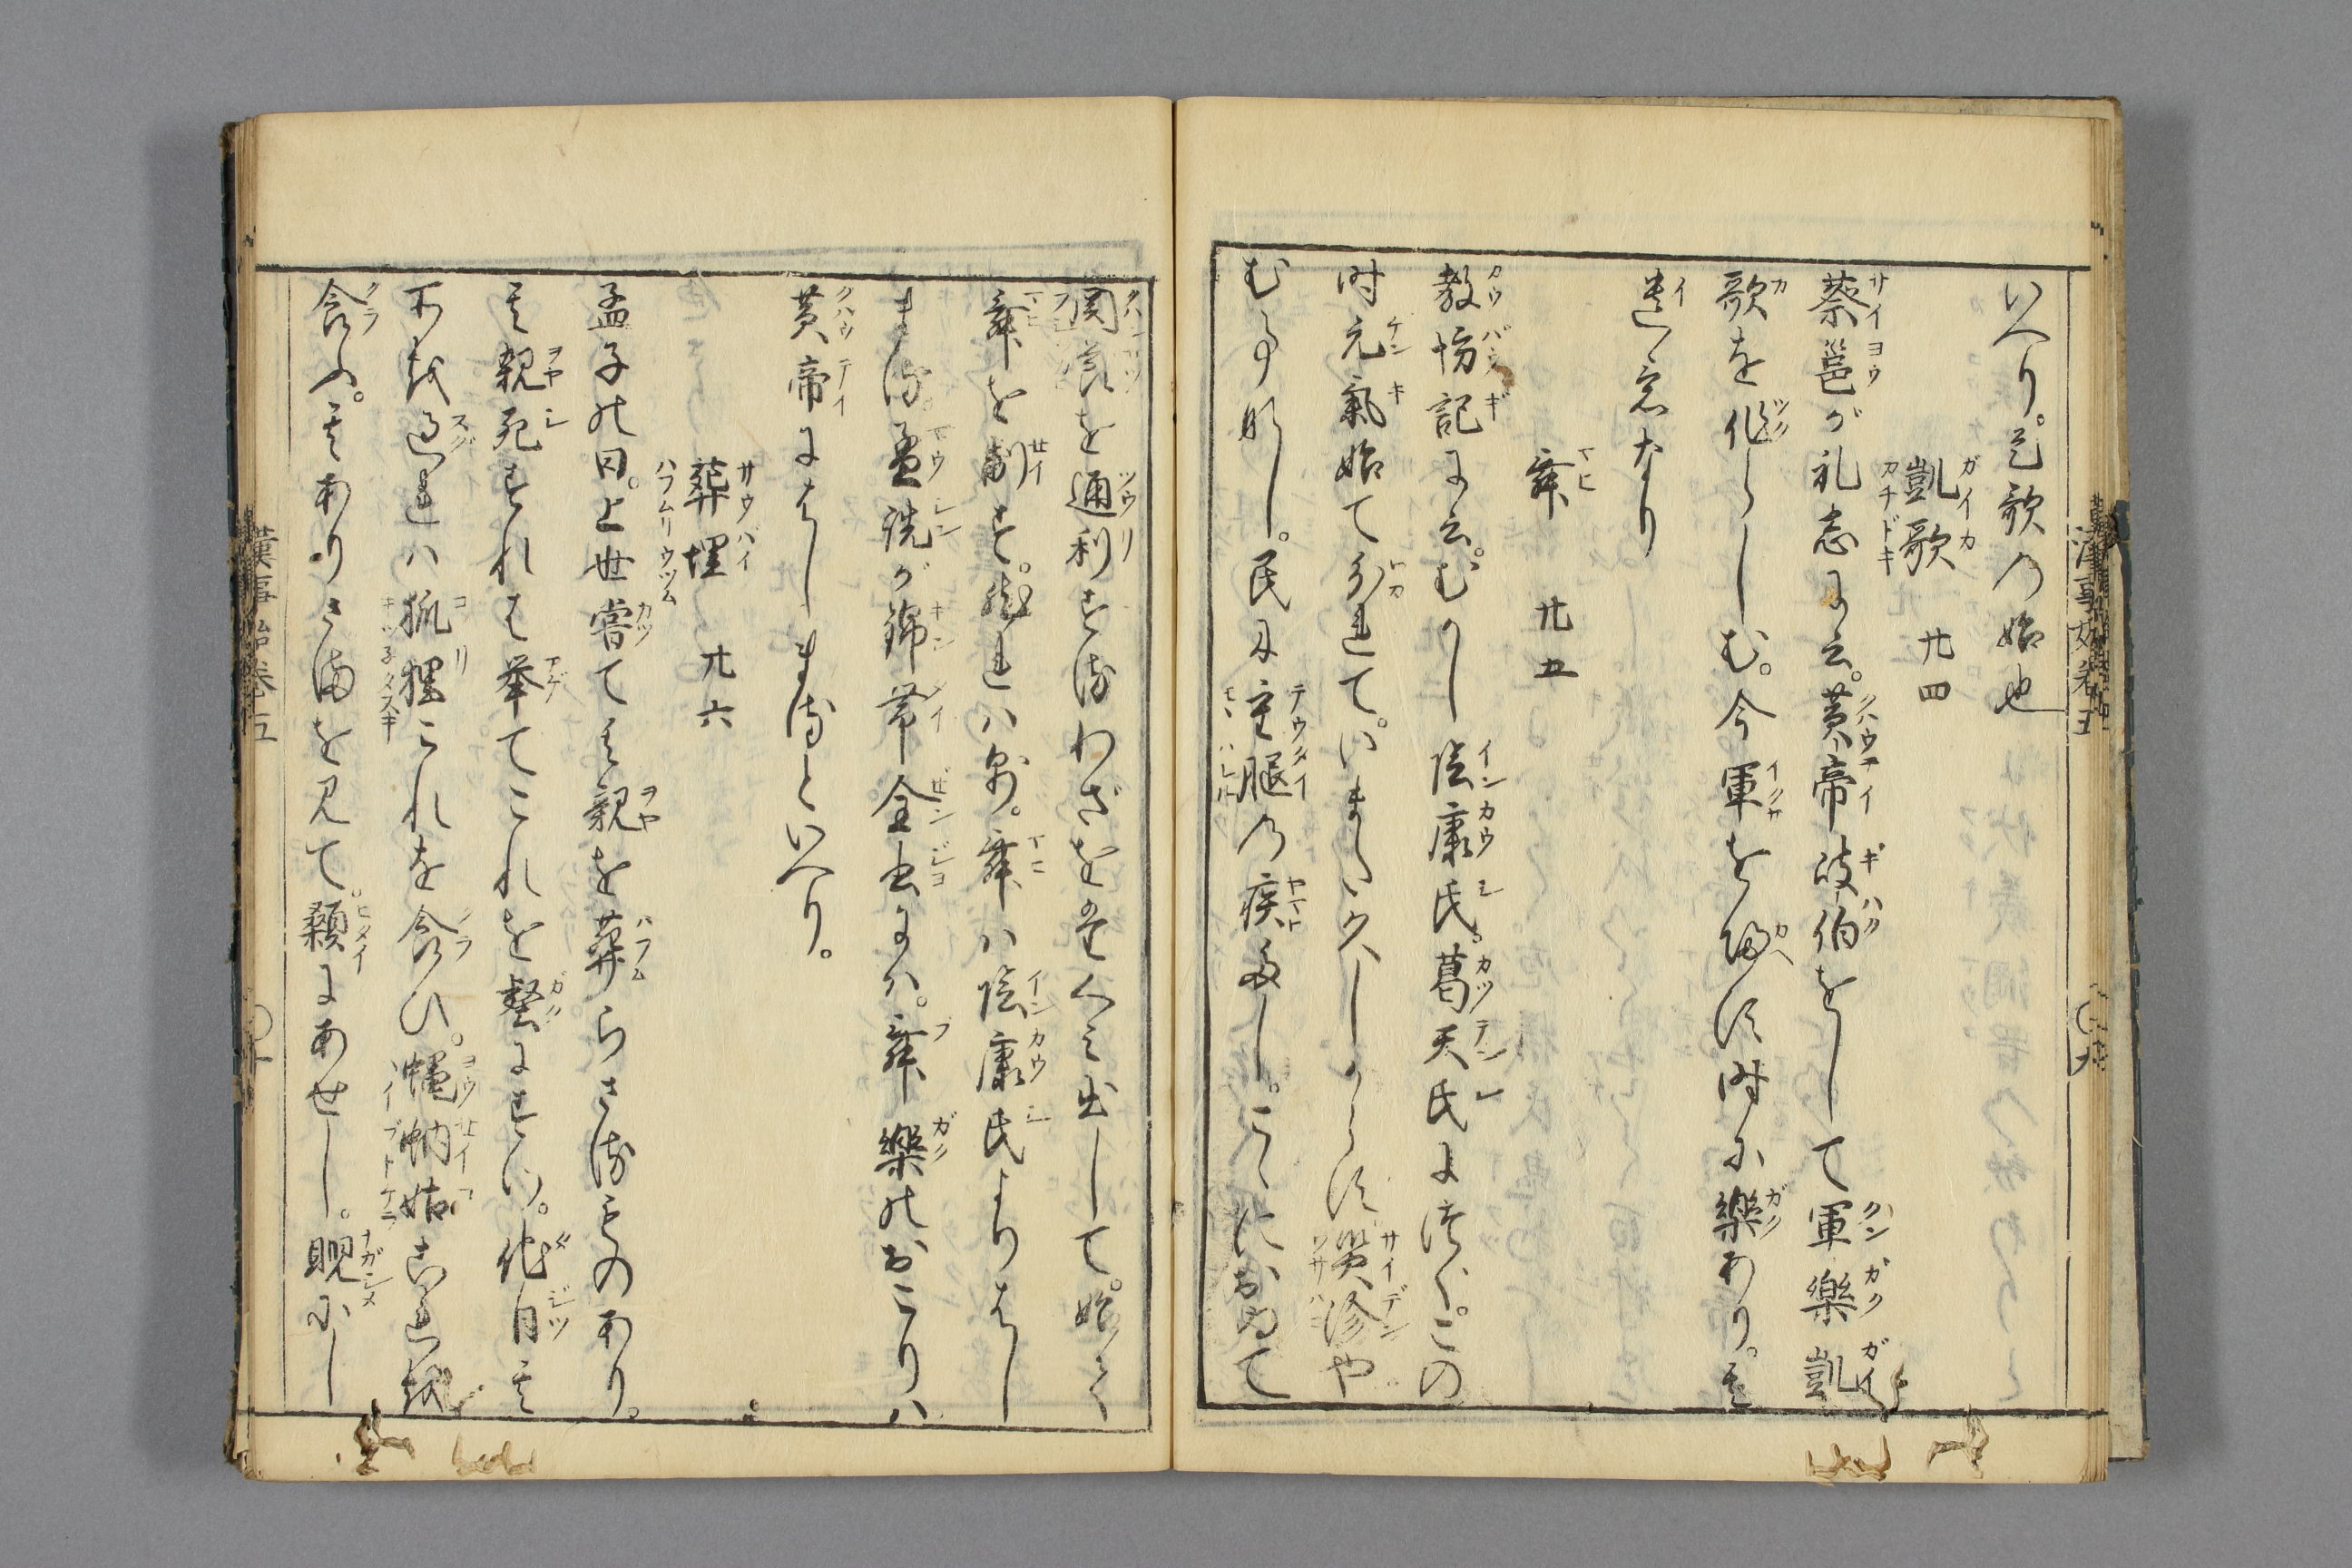 いへり。是歌の始也
凱歌 廿四
蔡邕が礼志に云。黄帝岐伯をして軍樂凱
歌を作らしむ。今軍を帰す時に樂あり。其
遺意なり
舞 廿五
教坊記に云。むかし陰康氏。葛天氏につぐ。この
时元氣始て分れて。いまだ久しからず災沴や
むことなし。民に重腿の疾多し。こゝにおゐて
関節を通利するわざをたくみ出して。始て
舞を制す。然れハ則。舞ハ陰康氏よりはじ
まる。孟詵が錦帯全書にハ。舞樂のおこりハ
黄帝にはじまるといへり。
葬埋 廿六
孟子の曰。上世嘗て其親を葬らざるものあり。
其親死すれば挙てこれを壑にすつ。他日其
所を過れハ狐狸これを食ひ。蠅蚋姑これを
食ふ。其ありさまを見て。顙にあせし。睨にし
漢事始巻五
漢事始巻五